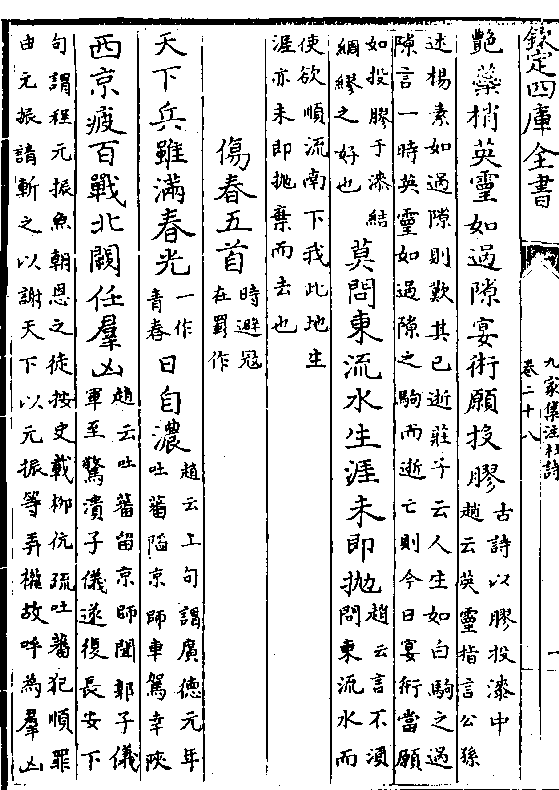 欽定四庫全書
九家集注杜詩
卷二十八
一
艷藥梢英靈如過隙宴術願投膠古詩以膠投漆中
趙云英靈指言公孫
述楊素如過隙則歎其已逝莊子云人生如白駒之過
隙言一時英靈如過隙之駒而逝亡則今日宴術當願
如投膠于漆結
綢繆之好也莫問東流水生涯未即抛趙云言不須
問東流水而
使欲順流南下我此地生
涯亦未即抛棄而去也
傷春五首時避寇
在蜀作
天下兵雖滿春光一作
青春日自濃趙云上句謂廣德元年
吐蕃陷京師車駕幸陜
西京疲百戰北闕任羣凶趙云吐蕃留京師聞郭子儀
軍至驚潰子儀遂復長安下
句謂程元振魚朝恩之徒按史載柳伉疏吐蕃犯順罪
由元振請斬之以謝天下以元振等弄權故呼為羣凶